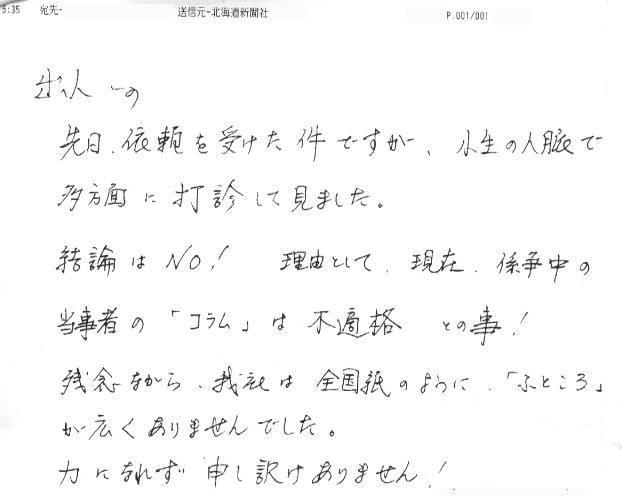 5:35 宛先- 送信元-北海道新聞社 P.001/001
どの
先日、依頼を受けた件ですが、小生の人脈で
多方面に打診して見ました。
結論はNO! 理由として、現在、係争中の
当事者の「コラム」は不適格 との事!
残念ながら、我社は全国紙のように、「ふところ」
が広くありませんでした。
力になれず申し訳けありません!